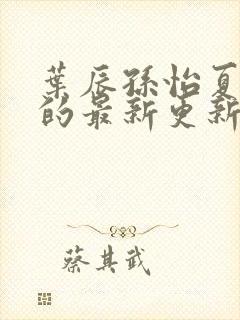 葉辰孫怡夏
的最新更新
蔡其武